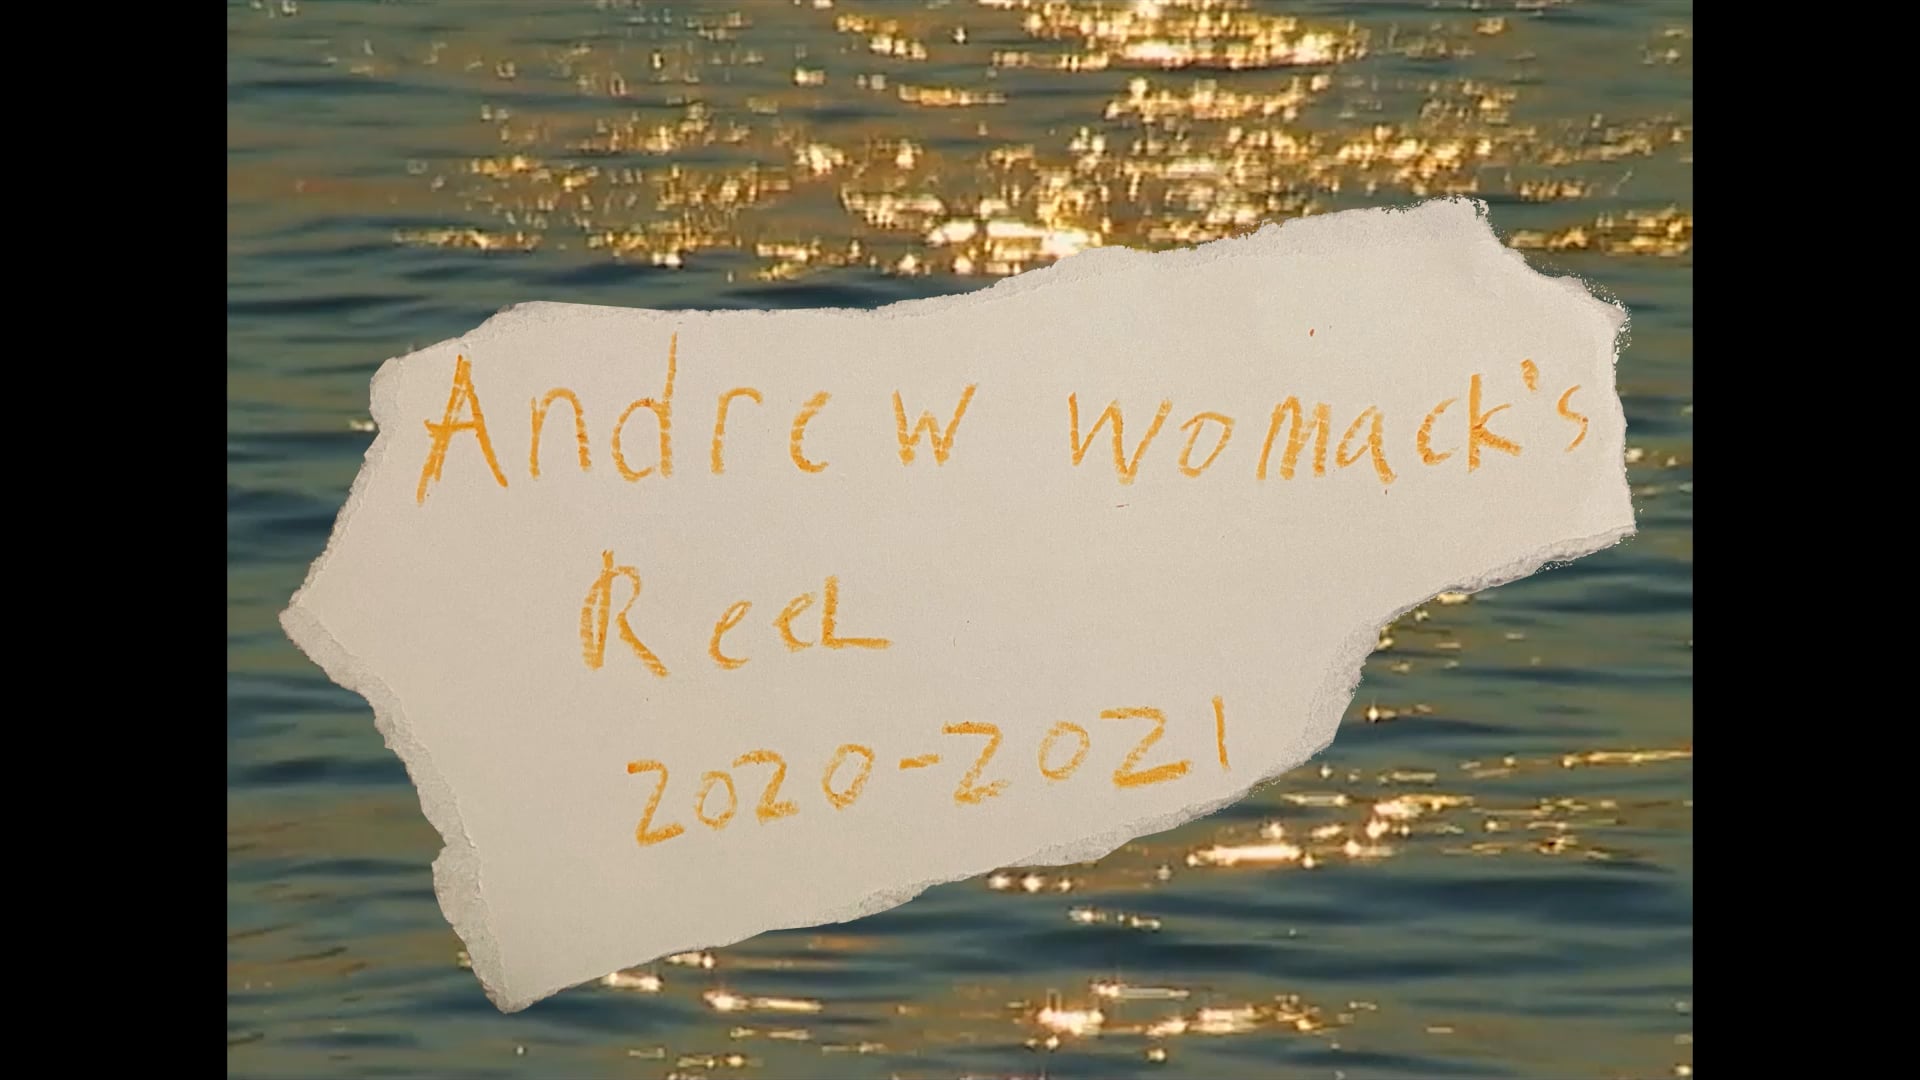 Andrew Womack's
Reel
2020-2021